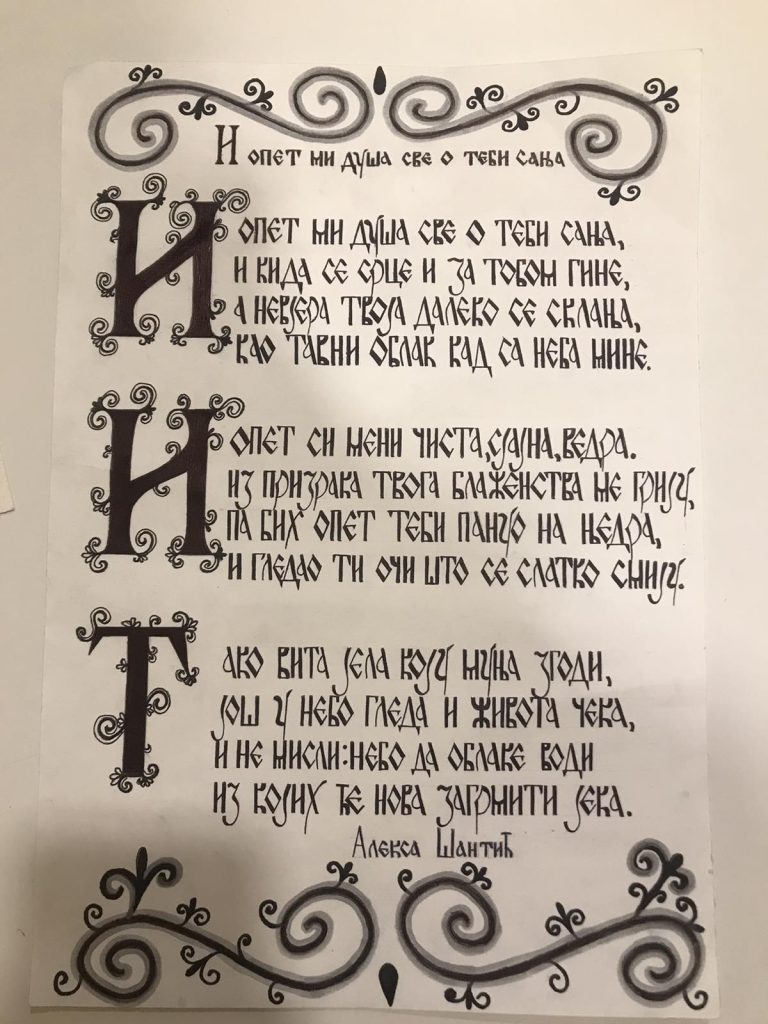 И опет ми душа све о теби сања
И опет ми душа све о теби сања,
и кида се срце и за тобом гине,
а невјера твоја далеко се склања,
као тавни облак кад са неба мине.
И опет си мени чиста,сјајна,ведра.
из призрака твога блаженства ме грију,
па бих опет теби пануо на њедра,
и гледао ти очи што се слатко смију.
Тако вита јела коју муња згоди,
још у небо гледа и живота чека,
и не мисли:небо да облаке води
из којих ће нова загрмити јека.
Алекса Шантић